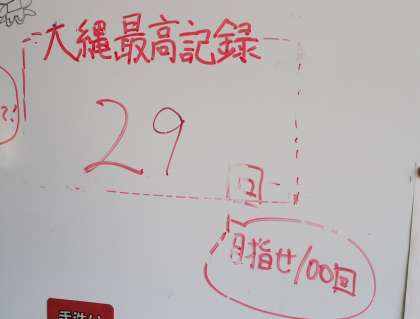 大縄最高記録
29
回
目指せ100回
手洗い